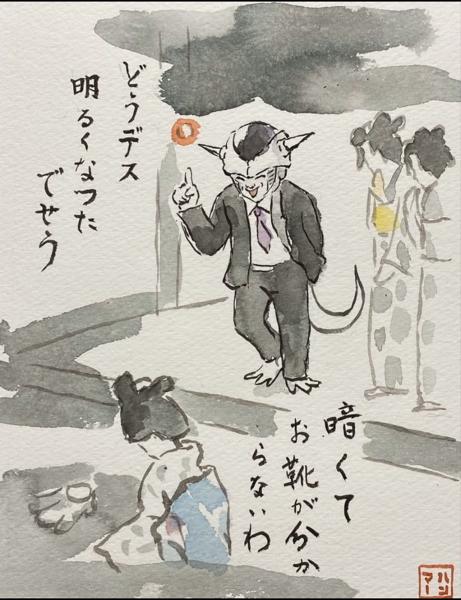 どうデス
明るくなつた
でせう
暗くて
お靴が分か
らないわ
ハン
マー